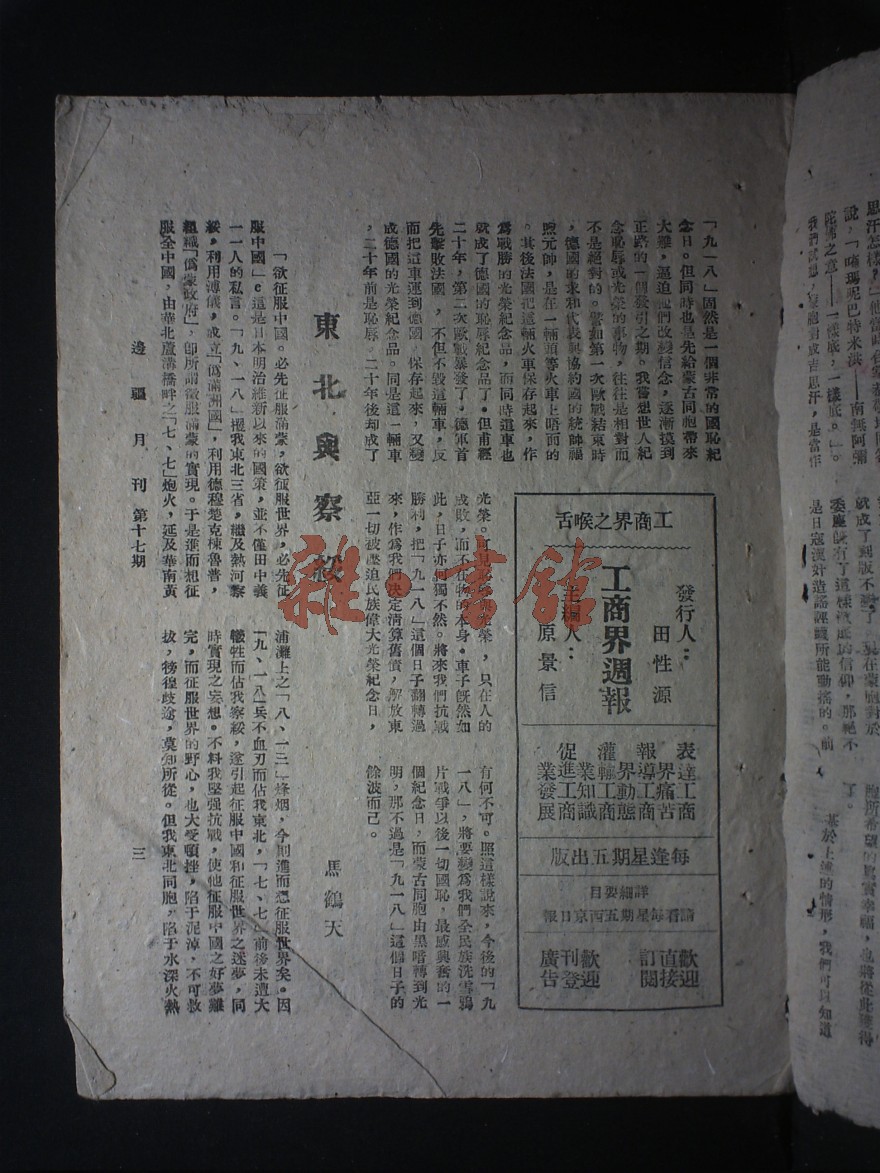 思汗怎樣，
說，「唵瑪呢巴特米洪——南無阿彌
陀佛之意——一樣底，一樣底。」。
是日寇漢奸造謠誣衊所能動搖的。前
胞所希望的真實幸福，也將從此獲得
了。
基於上述的情形，我們可以知道
「九一八」固然是一個非常的國恥紀
念日。但同時也是先給蒙古同胞帶來
大難，逼迫他們改變信念，逐漸摸到
正路的一個發引之期。我嘗想世人紀
念恥辱或光榮的事物，往往是相對而
不是絕對的。譬如第一次歐戰結束時
，德國的求和代表與協約國的統帥福
煦元帥，是在一輛頭等火車上晤面的
。其後法國把這輛火車保存起來，作
為戰勝的光榮紀念品，而同時這車也
就成了德國的恥辱紀念品了。但甫經
二十年，第二次歐戰暴發了。德軍首
先擊敗法國，不但不毀這輛車，反
而把這車運到德國，保存起來，又變
成德國的光榮紀念品。同是這一輛車
，二十年前是恥辱。二十年後却成了
光榮。可見恥辱與光榮，只在人的
成敗，而不在物的本身。車子旣然如
此，日子亦何獨不然。將來我們抗戰
勝利，把「九一八」這個日子翻轉過
來，作為我們決定清算舊債，解放東
亞一切被壓迫民族偉大光榮紀念日，
有何不可。照這樣說來，今後的「九
一八」，將要變為我們全民族洗雪鴉
片戰爭以後一切國恥，最感興奮的一
個紀念日，而蒙古同胞由黑暗轉到光
明，那不過是「九一八」這個日子的
餘波而已。
工商界之喉舌
發行人：田性源
工商界週報
主編人：原景信
表達工商
界痛苦
報導工商
界動態
灌輸工商
業知識
促進工商
業發展
每逢星期五出版
詳細要目
請看每星期五西京日報
歡迎直接訂閱
歡迎刊登廣告
東北與察綏
馬鶴天
「欲征服中國。必先征服滿蒙，欲征服世界，必先征
服中國」。這是日本明治維新以來的國策，並不僅田中義
一一人的私言。「九、一八」擾我東北三省，繼及熱河察
綏，利用溥儀，成立「偽滿洲國」，利用德穆楚克棟魯普，
組織「偽蒙政府」，卽所謂征服滿蒙的實現。于是進而想征
服全中國，由華北蘆溝橋畔之「七、七」炮火，延及華南黃
浦灘上之「八、一三」烽烟，今則進而想征服世界矣。因
「九、一八」兵不血刃而佔我東北，「七、七」前後未遭大
犧牲而佔我察綏，遂引起征服中國和征服世界之迷夢，同
時實現之妄想。不料我堅强抗戰，使他征服中國之好夢難
完，而征服世界的野心，也大受頓挫，陷于泥淖，不可救
拔，徬徨歧途，莫知所從。但我東北同胞，陷于水深火熱
邊疆月刊 第十七期
三
雜·書館